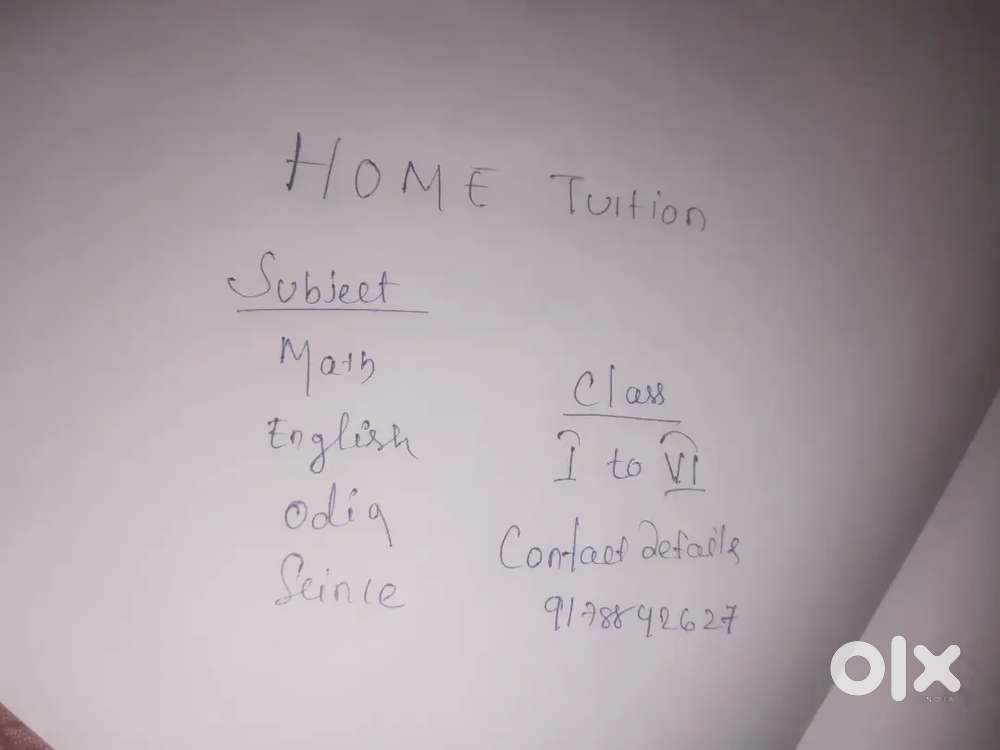 HOME Tuition
Subject
Math
English
Odia
Seince
Class
I to VI
Contact details
9178842627
olx
INDIA